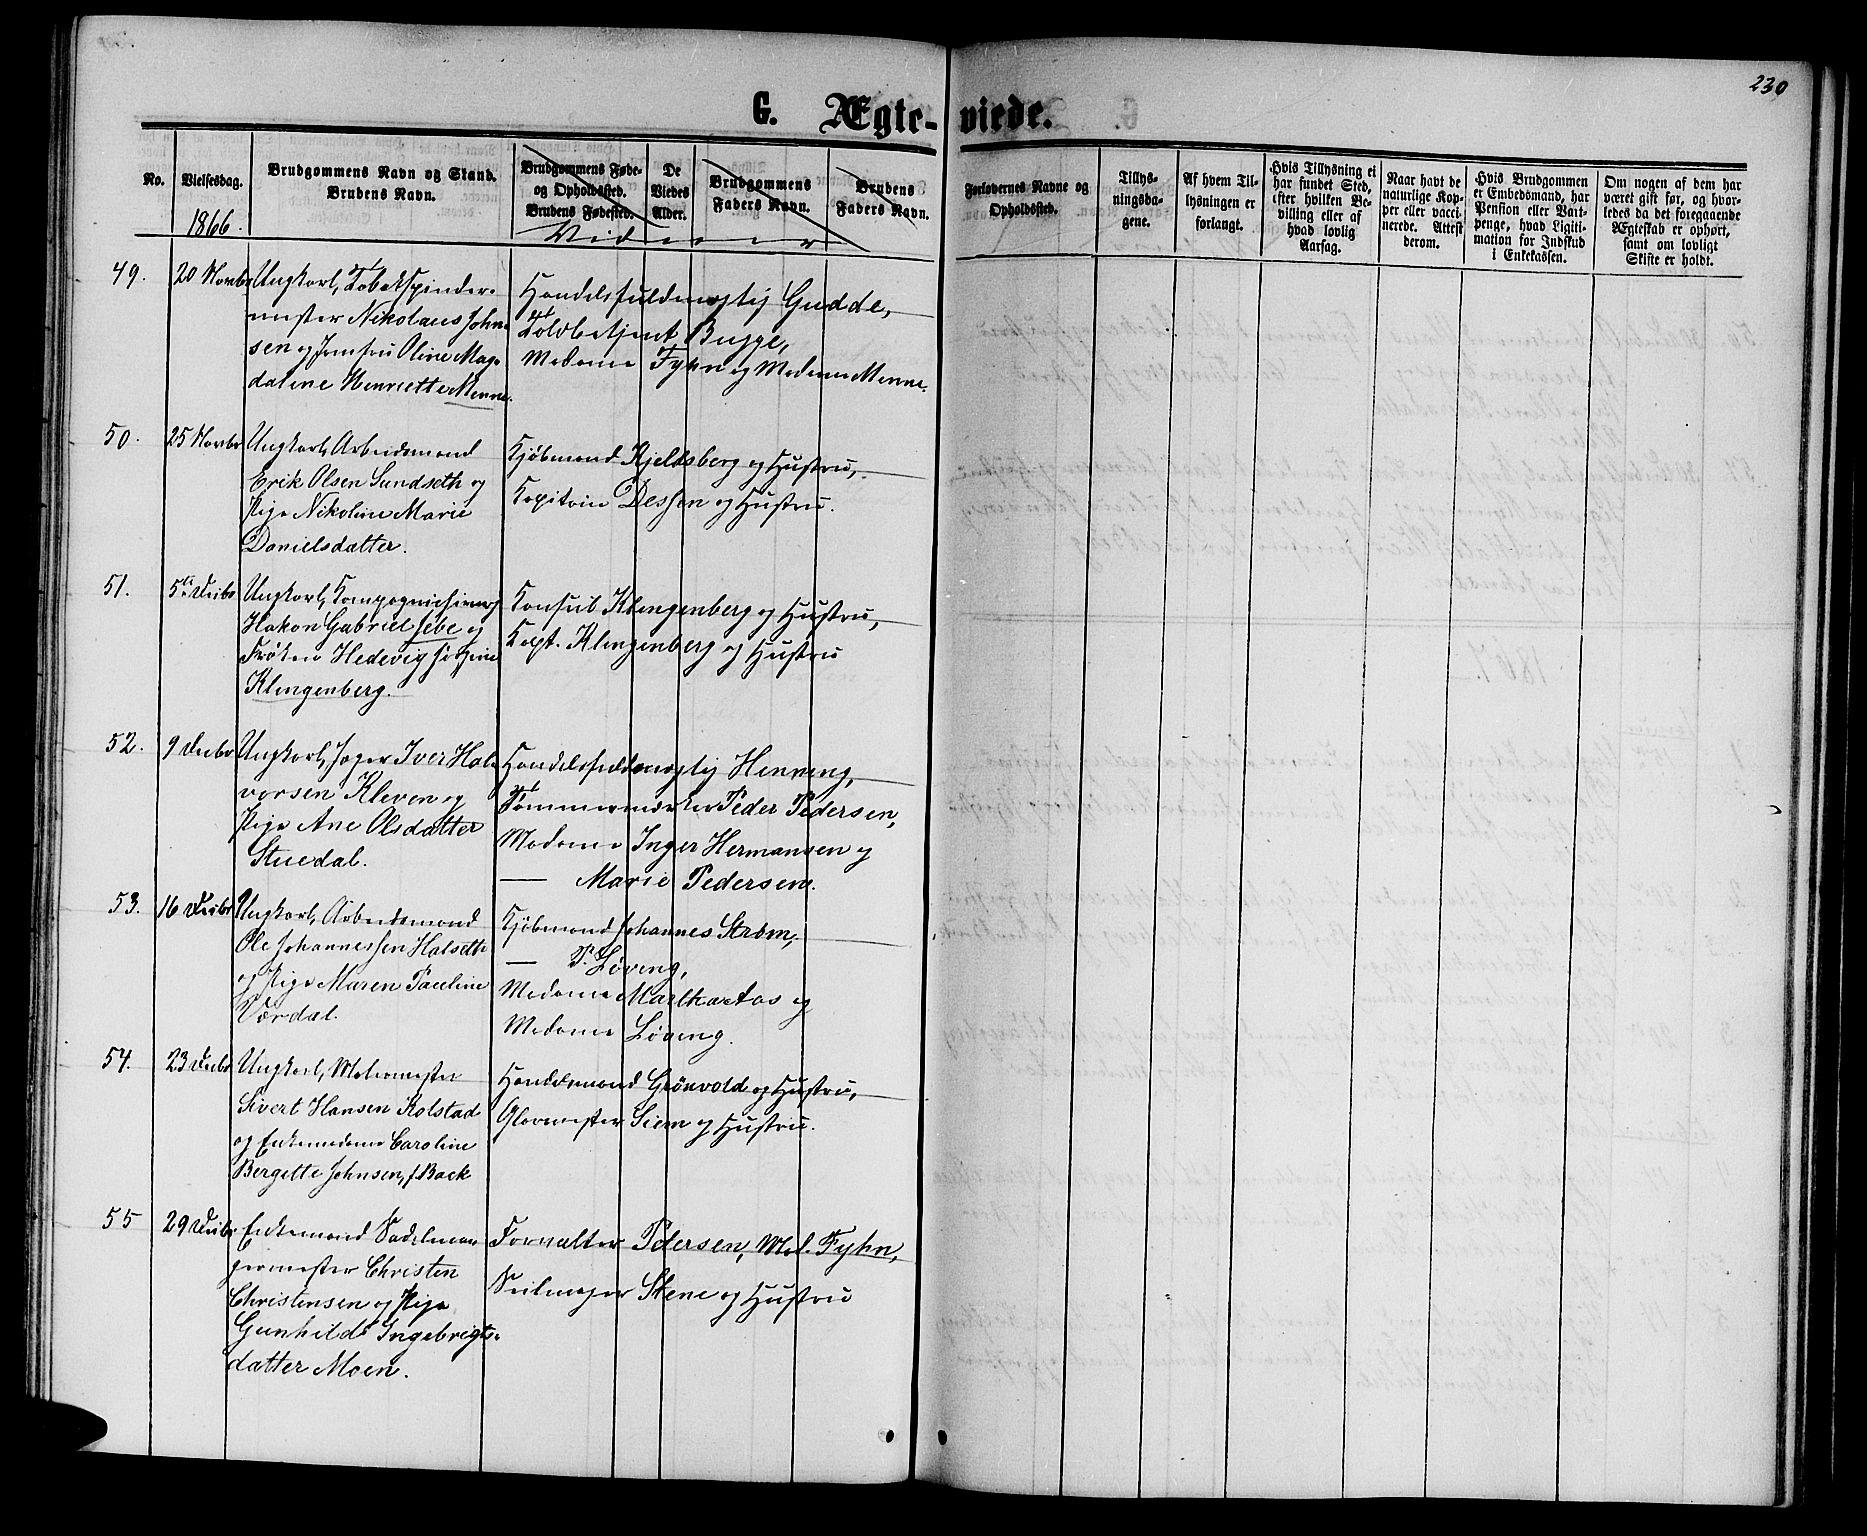 230
G. Ægte-viede.
No.
Vielsesdag.
1866.
Brudgommens Navn og Stand.
Brudens Navn.
Brudgommens Føde-
og Opholdssted.
Brudens Fødested.
De
Viedes
Alder.
Brudgommens
Faders Navn.
Brudens
Faders Navn.
Vidner
Forlovernes Navne og
Opholdssted.
Tillys-
ningsda-
gene.
Af hvem Til-
lysningen er
forlangt.
Hvis Tillysning ei
har fundet Sted,
efter hvilken Be-
villing eller af
hvad lovlig
Aarsag.
Naar havt de
naturlige Kop-
per eller vacci-
nerede. Attest
derom.
Hvis Brudgommen
er Embedsmand, har
Pension eller Vart-
penge, hvad Ligiti-
mation for Indskud
i Enkekassen.
Om nogen af dem har
været gift før, og hvor-
ledes da det foregaaende
Ægteskab er ophørt,
samt om lovligt
Skifte er holdt.
49. 20 Novbr Ungkarl, Tobakspinder-
mester Nikolaus John-
sen og Jomfru Oline Mag-
dalene Henriette Menne.
Handelsfuldmægtig Gudde,
Toldbetjent Bugge,
Madame Fyhn og Madame Menne.
50. 25 Novbr Ungkarl, Arbeidsmand
Erik Olsen Sundseth og
Pige Nikoline Marie
Danielsdatter.
Kjøbmand Kjeldsberg og Hustru,
Kapitain Dessen og Hustru.
51. 5te Decbr Ungkarl, Kompagnichirurg
Hakon Gabriel Sebe og
Frøken Hedevig Jørgine
Klingenberg.
Konsul Klingenberg og Hustru,
Kapt. Klingenberg og Hustru
52. 9 Decbr Ungkarl, Jæger Iver Hal-
vorsen Kleven og
Pige Ane Olsdatter
Stuedal.
Handelsfuldmægtig Henning,
Tømmermærker Peder Pedersen,
Madame Inger Hermansen og
— Marie Pedersen.
53. 16 Decbr Ungkarl, Arbeidsmand
Ole Johannessen Halseth
og Pige Maren Pauline
Værdal.
Kjøbmand Johannes Strøm,
— P. Løveng,
Madame og
Madame Løveng.
54. 23 Decbr Ungkarl, Malermester
Sivert Hansen Kolstad
og Enkemadame Caroline
Bergitte Johnsen, f. Back
Handelsmand Grönvold og Hustru,
Glarmester Siem og Hustru.
55 29 Decbr Enkemand Sadelma-
germester Christen
Christensen og Pige
Gunhild Ingebrigts-
datter Moen.
Forvalter Pdersen, Mad. Fyhn,
Seilmager Stene og Hustru